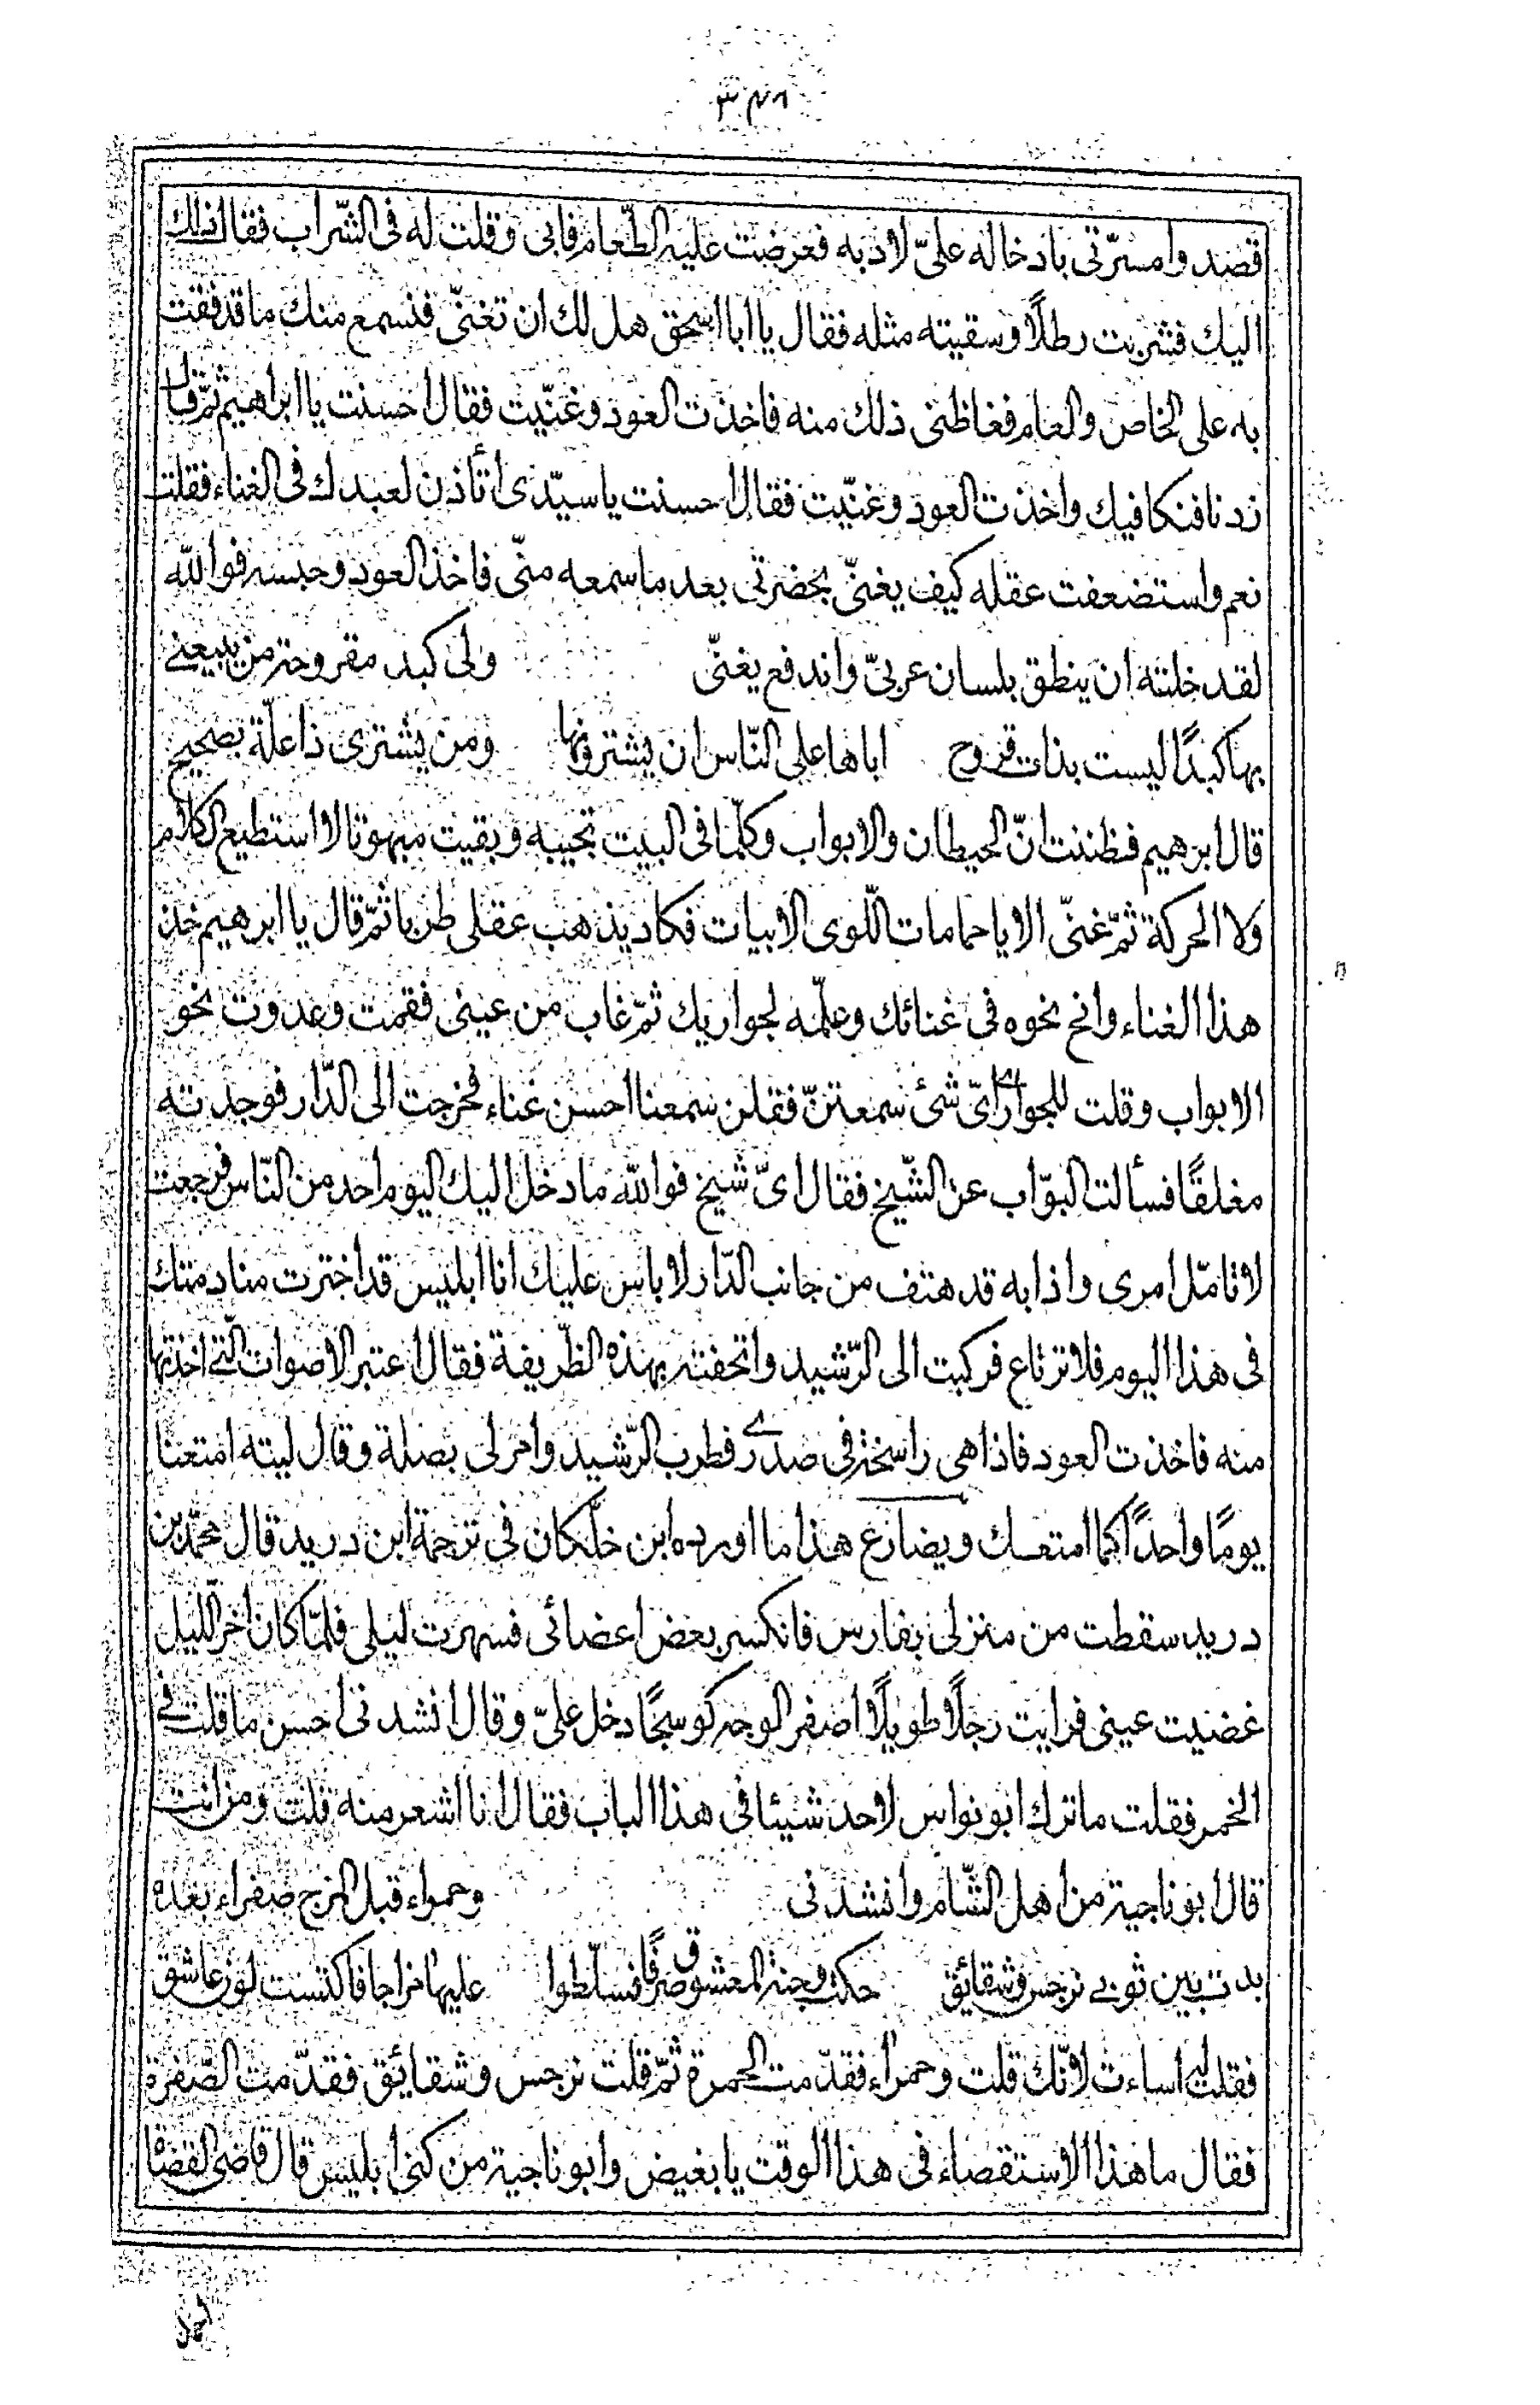 قصد وامسرّتى بادخاله علىّ لادبه فعرضت عليه الطّعام فابى وقلت له فى الشّراب فقال ذلك
اليك فشربت رطلًا وسقيته مثله فقال يا ابا اسحق هل لك ان تغنّى فنسمع منك ما قد فقت
به على الخاص والعام فغاظنى ذلك منه فاخذت العود وغنّيت فقال احسنت يا ابراهيم ثمّ قال
زدنا فنكافيك واخذت العود وغنّيت فقال احسنت يا سيّدى أتأذن لعبدك فى الغناء فقلت
نعم واستضعفت عقله كيف يغنّى بحضرتى بعد ما سمعه منّى فاخذ العود وحبسه فوالله
لقد خلته ان ينطق بلسان عربىّ واندفع يغنّى ولى كبد مقروحة من يبيعنى
بها كبدًا ليست بذات قروح اباها على النّاس ان يشترونها ومن يشترى ذا علّة بصحيح
قال ابرهيم فظننت انّ الحيطان والابواب وكلّما فى البيت تجيبه وبقيت مبهوتا لا استطيع الكلام
ولا الحركة ثمّ غنّى الا يا حمامات اللّوى الابيات فكاد يذهب عقلى طربا ثمّ قال يا ابرهيم خذ
هذا الغناء وانح نحوه فى غنائك وعلّمه لجواريك ثمّ غاب من عينى فقمت وعدوت نحو
الابواب وقلت للجوار اىّ شئ سمعتنّ فقلن سمعنا احسن غناء فخرجت الى الدّار فوجدته
مغلقًا فسألت البوّاب عن الشّيخ فقال اىّ شيخ فوالله ما دخل اليك اليوم احد من النّاس فرجعت
لاتامّل امرى واذا به قد هتف من جانب الدّار لا باس عليك انا ابليس قد اخترت منادمتك
فى هذا اليوم فلا ترتاع فركبت الى الرّشيد واتحفته بهذه الظّريفة فقال اعتبر الاصوات الّتى اخذتها
منه فاخذت العود فاذا هى راسخة فى صدرى فطرب الرّشيد وامر لى بصلة وقال ليته امتعنا
يومًا واحدًا كما امتعك ويضارع هذا ما اورده ابن خلّكان فى ترجمة ابن دريد قال محمّد بن
دريد سقطت من منزلى بفارس فانكسر بعض اعضائى فسهرت ليلى فلمّا كان اخر اللّيل
غضيت عينى فرايت رجلًا طويلًا اصفر الوجه كوسجًا دخل علىّ وقال انشدنى احسن ما قلت فى
الخمر فقلت ما ترك ابو نواس لاحد شيئا فى هذا الباب فقال انا اشعر منه قلت ومن انت
قال ابو ناجية من اهل الشّام وانشدنى وحمراء قبل المزج صفراء بعده
بدت بين ثوبى نرجس وشقائق حكت وجنة المعشوق صرفًا فسلّطوا عليها مزاجا فاكتست لون عاشق
فقلت له اساءت لانّك قلت وحمراء فقدّمت الحمرة ثمّ قلت نرجس وشقائق فقدّمت الصّفرة
فقال ما هذا الاستقصاء فى هذا الوقت يا بغيض وابو ناجية من كنى ابليس قال قاضى القضاة